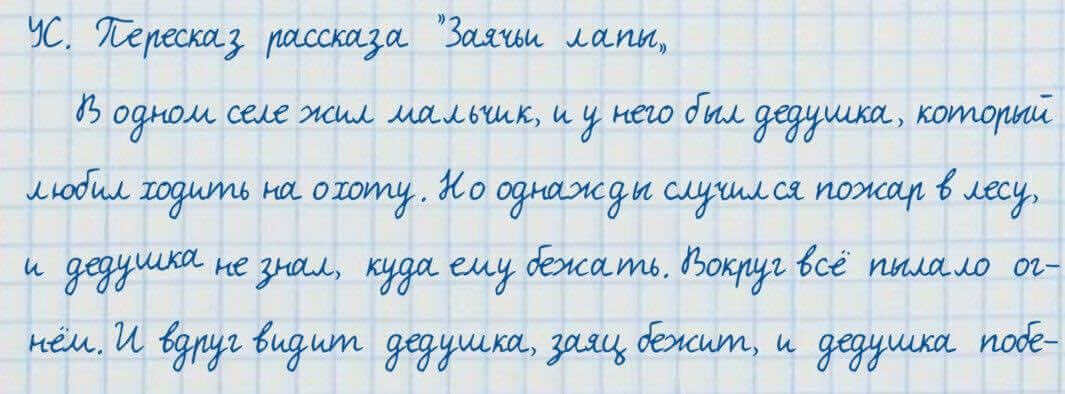 ЧС. Пересказ рассказа "Заячьи лапы„
В одном селе жил мальчик, и у него был дедушка, который
любил ходить на охоту. Но однажды случился пожар в лесу,
и дедушка не знал, куда ему бежать. Вокруг всё пылало ог-
нём. И вдруг видит дедушка, заяц бежит, и дедушка побе-